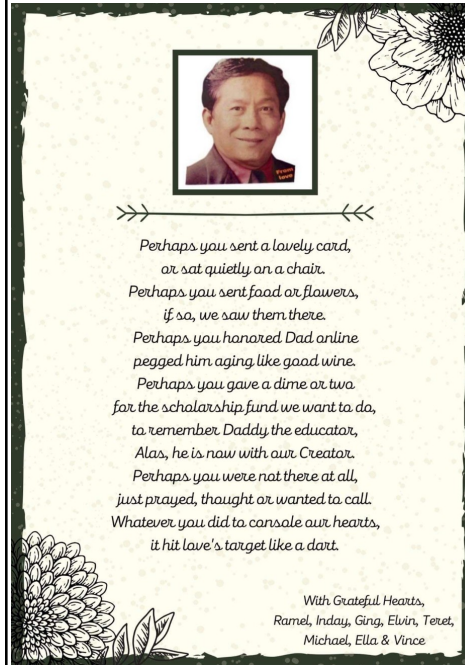 From
love
Perhaps you sent a lovely card,
or sat quietly on a chair.
Perhaps you sent food or flowers,
if so, we saw them there.
Perhaps you honored Dad online
pegged him aging like good wine.
Perhaps you gave a dime or two
for the scholarship fund we want to do,
to remember Daddy the educator,
Alas, he is now with our Creator.
Perhaps you were not there at all,
just prayed, thought or wanted to call.
Whatever you did to console our hearts,
it hit love's target like a dart.
With Grateful Hearts,
Ramel, Inday, Ging, Elvin, Teret,
Michael, Ella & Vince